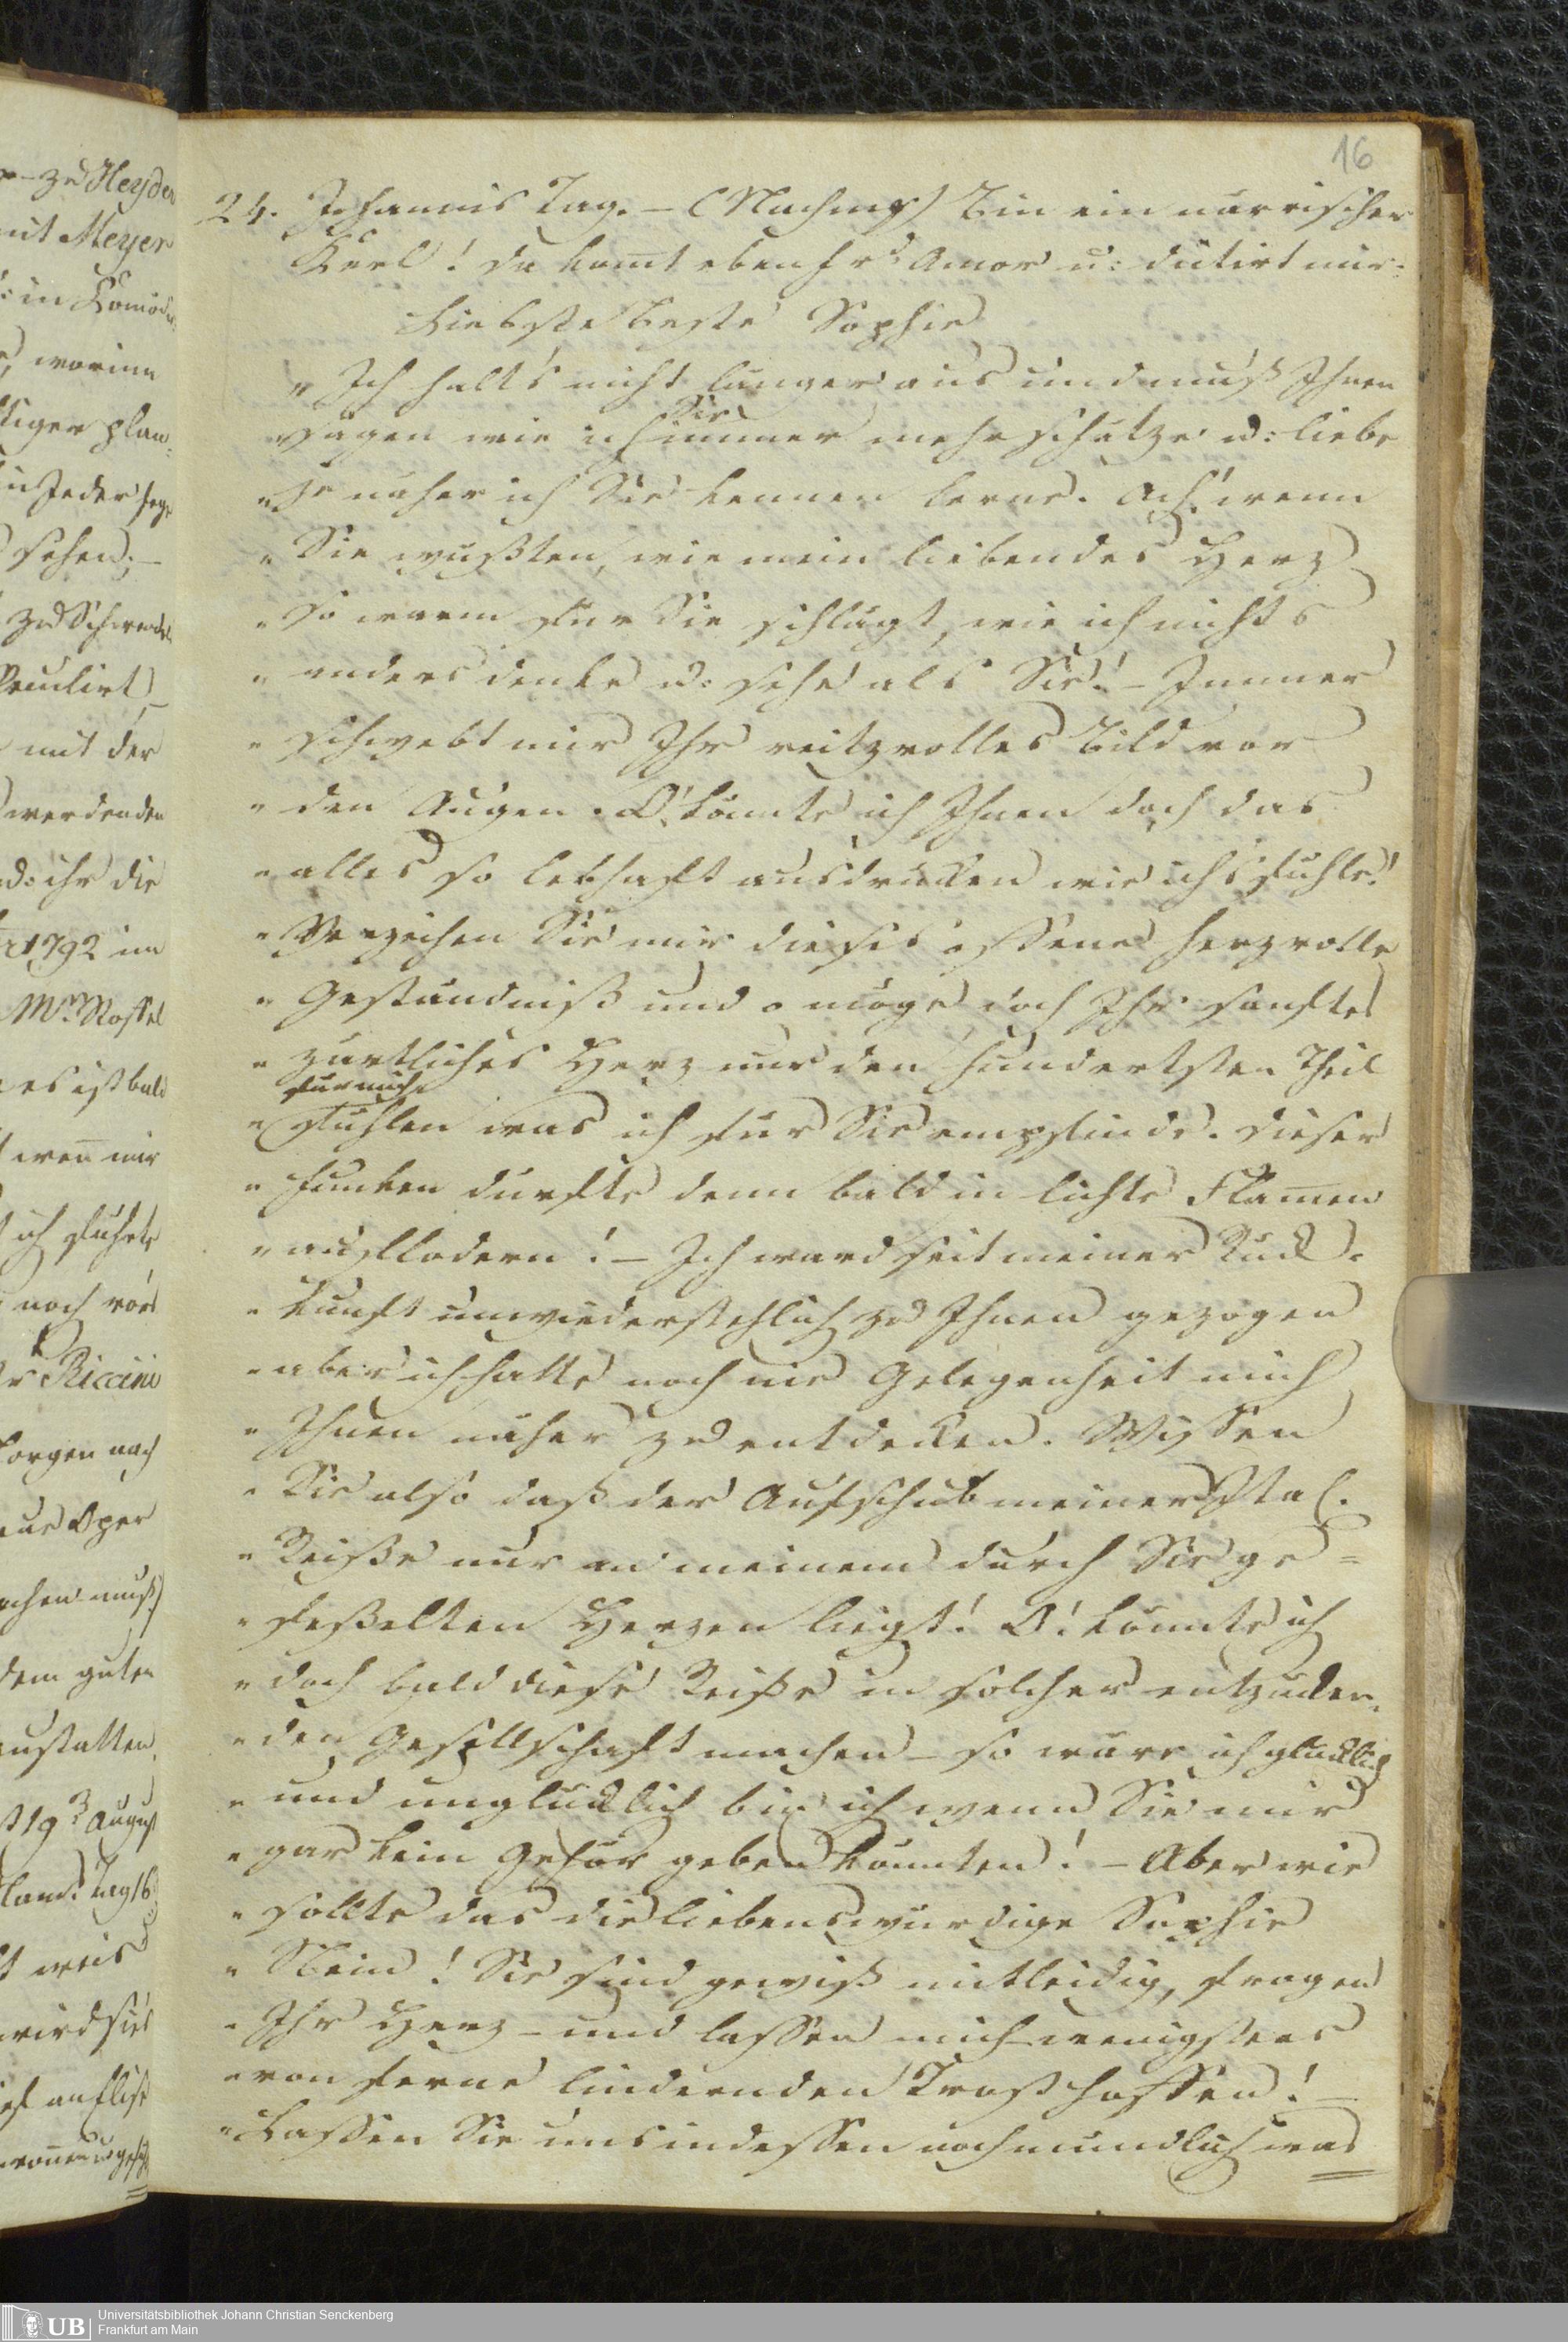 16
24. Johannis Tag. – (Nachmgs) Bin ein närrischer
Kerl! Da komt eben fr. Amor u: dictirt mir:
Liebste beste Sophie
"Ich halt's nicht länger aus und muß Ihnen
Sie
"sagen wie ich immer mehr schätze u: liebe
"je näher ich Sie kennen lerne. Ach! wenn
"Sie wüßten, wie mein liebendes Herz
"so warm für Sie schlägt, wie ich nichts
"anders denke u: sehe als Sie! – Immer
"schwebt mir Ihr reitzvolles Bild vor
"den Augen. O! könnte ich Ihnen doch das
"alles so lebhaft ausdrücken wie ich's fühle!
"Verzeihen Sie mir dieses offene herzvolle
"Geständniß und o möge doch Ihr sanftes
"zärtliches Herz nur den hundertsten Theil
für mich
"fühlen was ich für Sie empfinde. Dieser
"Funken dürfte denn bald in lichte Flamen
"auflodern! – Ich ward seit meiner Rück-
"kunft unwiederstehlich zu Ihnen gezogen
"aber ich hatte noch nie Gelegenheit mich
"Ihnen näher zu entdecken. Wissen
"Sie also daß der Aufschub meiner Ital.
"Reise nur an meinem durch Sie ge=
"fesselten Herzen liegt! O! könnte ich
"doch bald diese Reise in solcher entzücken-
"den Gesellschaft machen – so wäre ich glücklich
"und unglücklich bin ich wenn Sie mir
"gar kein Gehör geben könnten! – Aber wie
"sollte das die liebenswürdige Sophie
"Nein! Sie sind gewiß mitleidig, fragen
"Ihr Herz – und lassen mich wenigstens
"von ferne lindernden Trost hoffen! –
"Lassen Sie uns indessen noch mündlich was
zu Heyder
mit Meyer
worinn
plan
Jeder
sehen; –
mit der
werdenden
ihr die
1792 im
es ist bald
mir
ich führte
noch vor
Riccini
morgen nach
Oper
machen muß)
dem guten
anstatten
19 August
weis
UB
Universitätsbibliothek Johann Christian Senckenberg
Frankfurt am Main